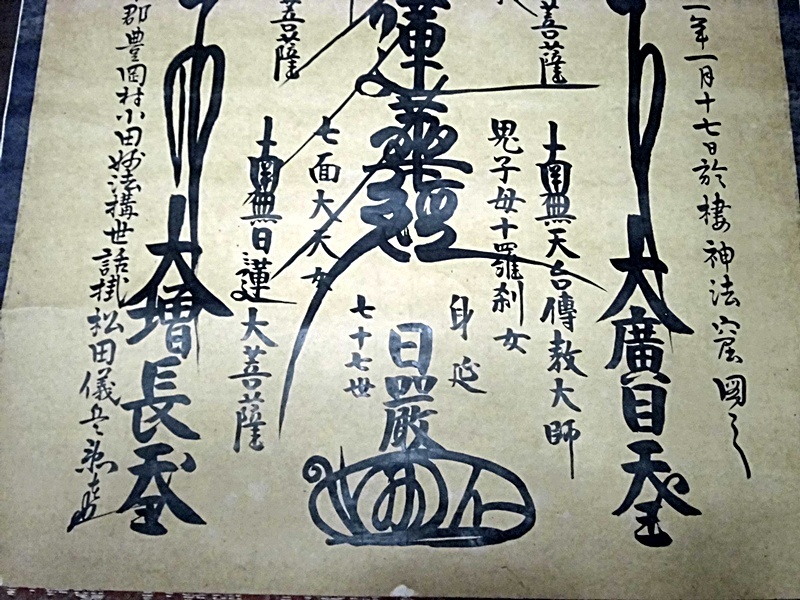 一年一月十七日於棲神法窟図之
大廣目天王
菩薩
南無天台傳教大師
鬼子母十羅刹女
蓮華經
身延
日厳
七十七世
七面大天女
菩薩
南無日蓮大菩薩
大増長天王
郡豊岡村小田妙法構世話掛松田儀兵